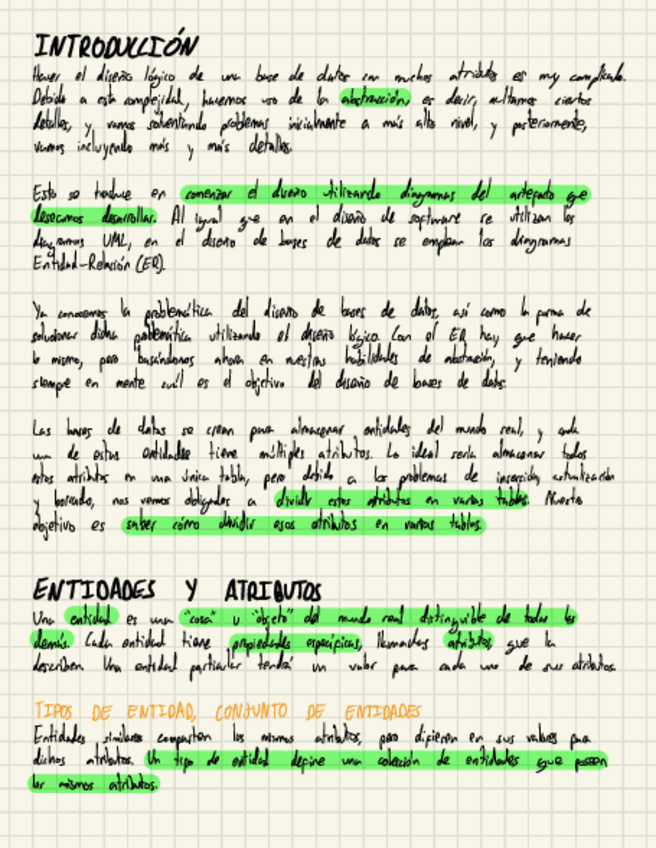 INTRODUCCIÓN
Hacer el diseño lógico de una base de datos con muchos atributos es muy complicado.
Debido a esta complejidad, hacemos uso de la abstracción, es decir, ocultamos ciertos
detalles, y vamos solventando problemas inicialmente a más alto nivel, y posteriormente,
vamos incluyendo más y más detalles.
Esto se traduce en comenzar el diseño utilizando diagramas del artefacto que
deseamos desarrollar. Al igual que en el diseño de software se utilizan los
diagramas UML, en el diseño de bases de datos se emplean los diagramas
Entidad-Relación (ER).
Ya conocemos la problemática del diseño de bases de datos, así como la forma de
solucionar dicha problemática utilizando el diseño lógico. Con el ER hay que hacer
lo mismo, pero basándonos ahora en nuestras habilidades de abstracción, y teniendo
siempre en mente cuál es el objetivo del diseño de bases de datos.
Las bases de datos se crean para almacenar entidades del mundo real, y cada
una de estas entidades tiene múltiples atributos. Lo ideal sería almacenar todos
estos atributos en una única tabla, pero debido a los problemas de inserción, actualización
y borrado, nos vemos obligados a dividir estos atributos en varias tablas. Nuestro
objetivo es saber cómo dividir esos atributos en varias tablas.
ENTIDADES Y ATRIBUTOS
Una entidad es una "cosa" u "objeto" del mundo real distinguible de todas las
demás. Cada entidad tiene propiedades específicas, llamadas atributos, que la
describen. Una entidad particular tendrá un valor para cada uno de sus atributos.
TIPOS DE ENTIDAD, CONJUNTO DE ENTIDADES
Entidades similares comparten los mismos atributos, pero difieren en sus valores para
dichos atributos. Un tipo de entidad define una colección de entidades que poseen
los mismos atributos.